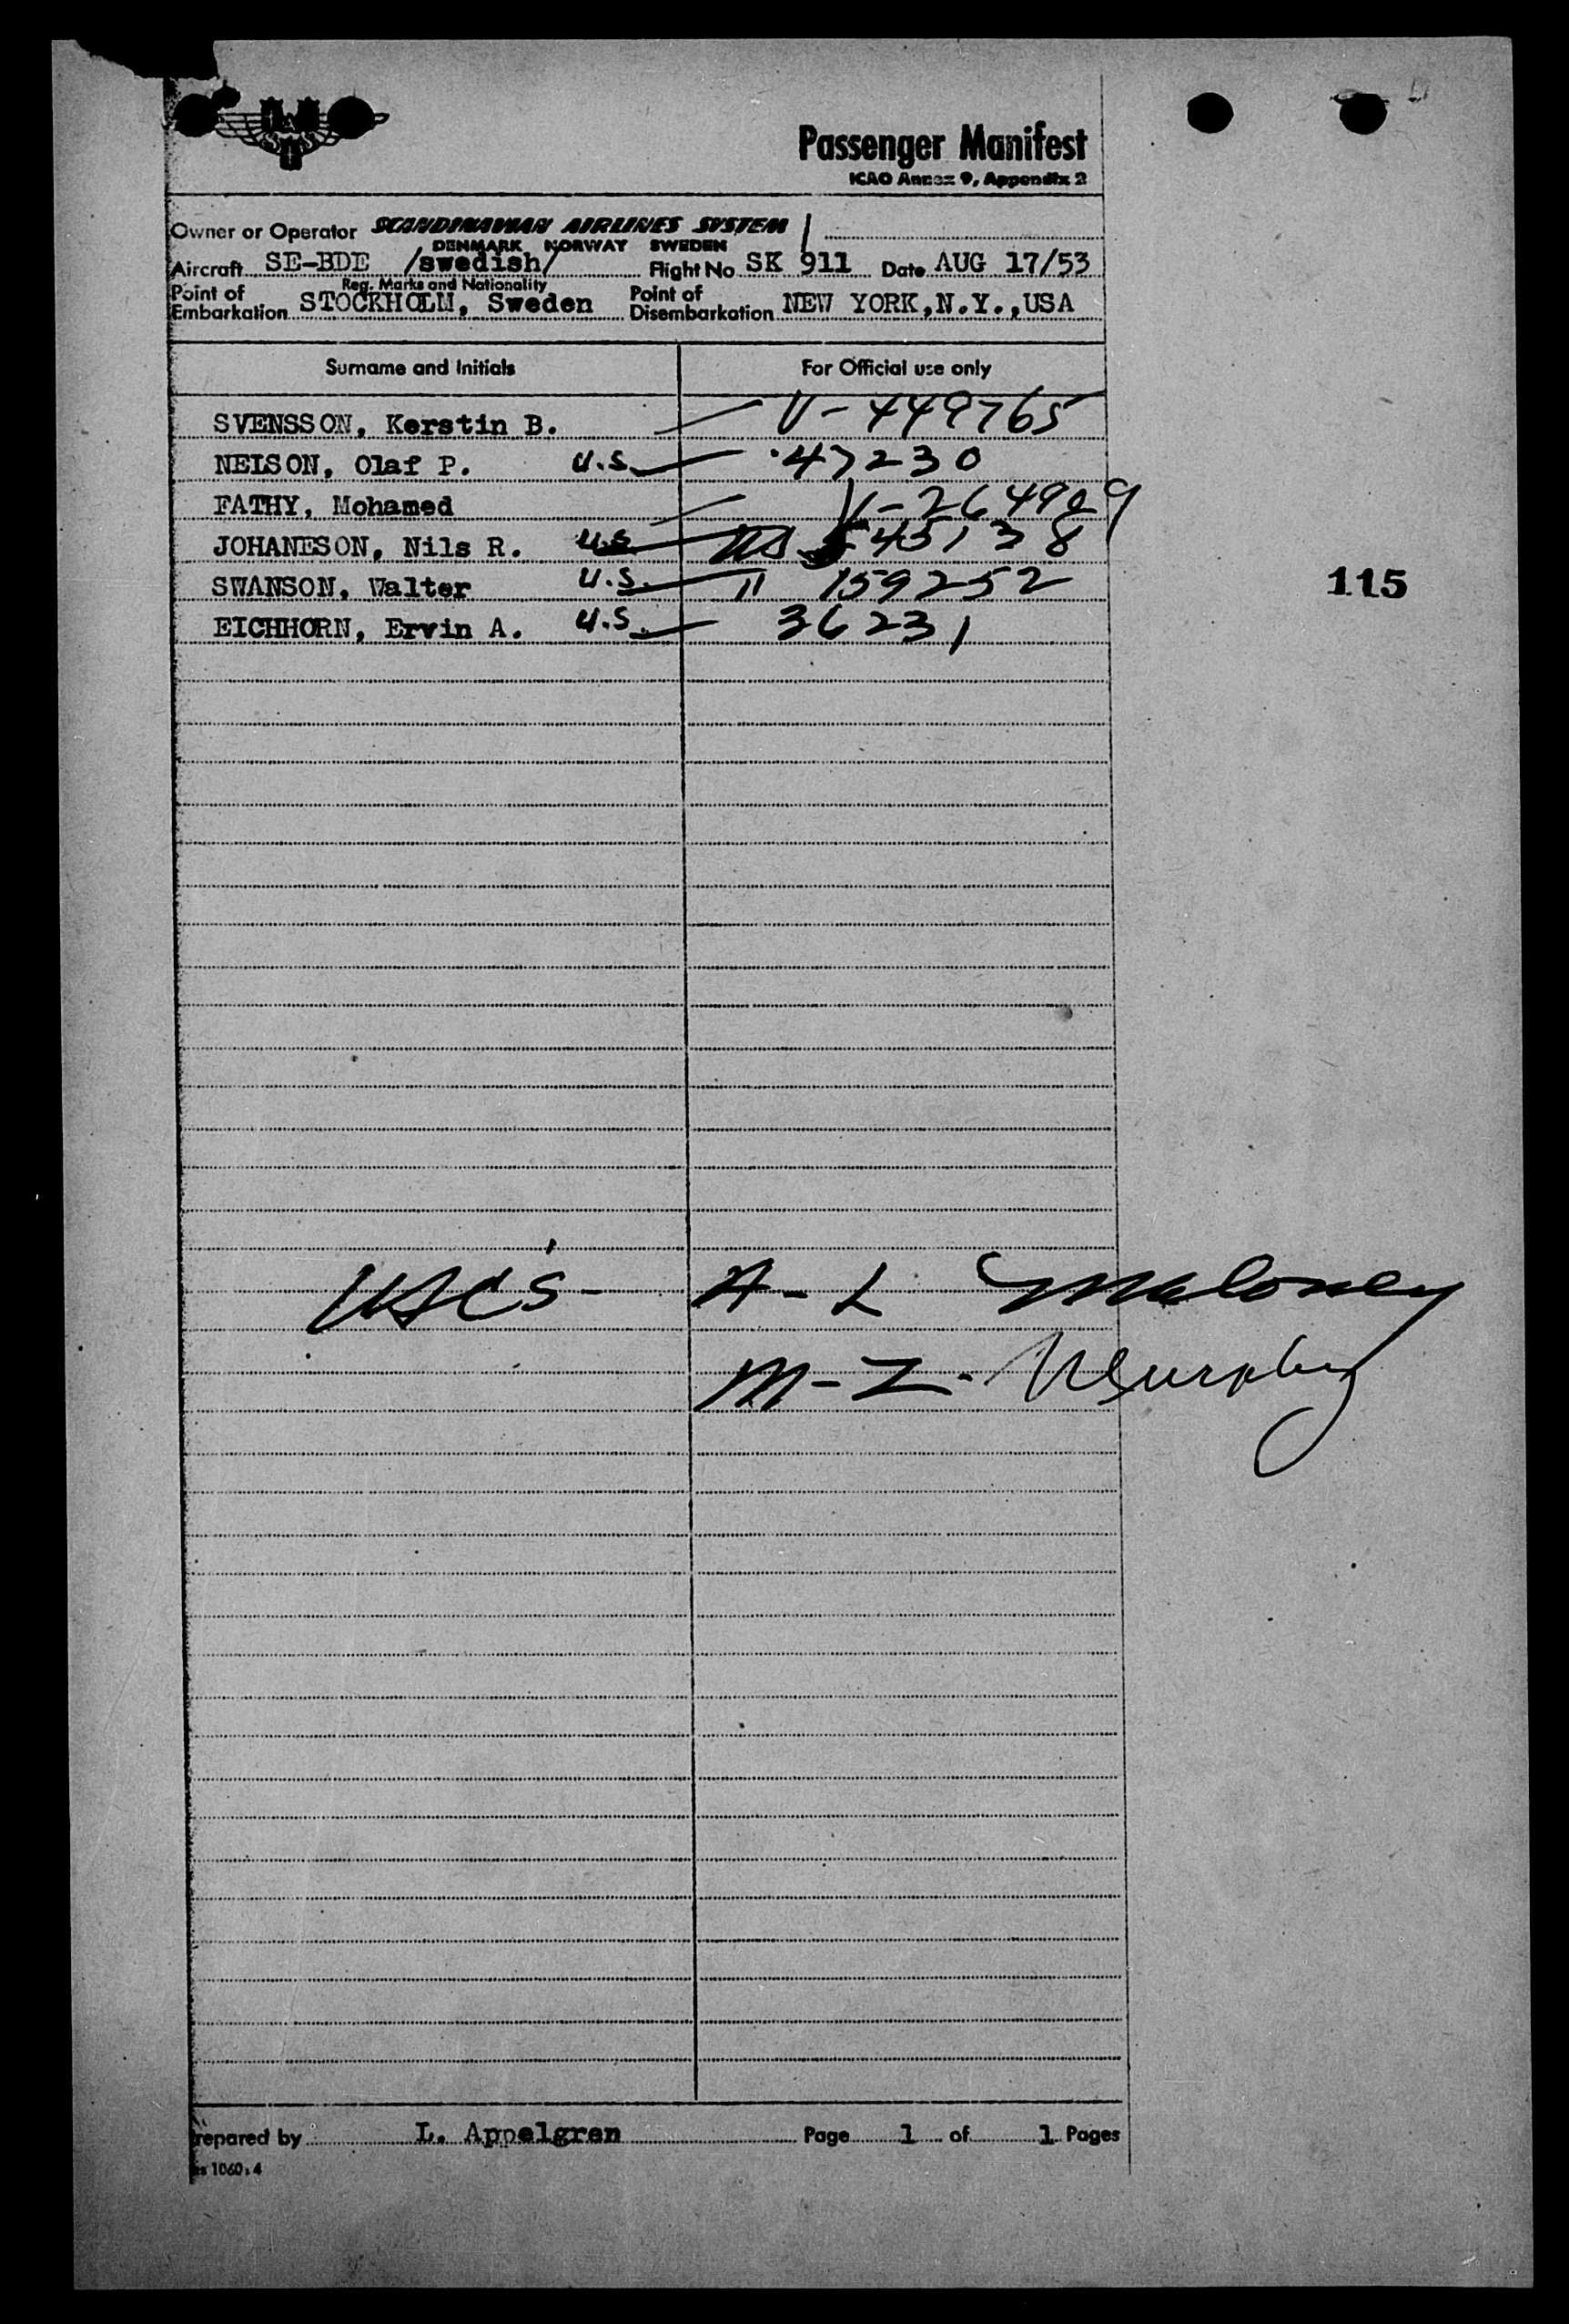 Passenger Manifest
ICAO Annex 9, Appendix 2
Owner or Operator SCANDINAVIAN AIRLINES SYSTEM
DENMARK NORWAY SWEDEN
Aircraft SE-BDE /swedish/ Flight No SK 911 Date AUG 17/53
Reg. Marks and Nationality
Point of Embarkation STOCKHOLM, Sweden Point of Disembarkation NEW YORK,N.Y.,USA
Surname and Initials For Official use only
SVENSSON, Kerstin B. V-449765
NELSON, Olaf P. U.S. 47230
FATHY, Mohamed V-264929
JOHANESON, Nils R. U.S. 45138
SWANSON, Walter U.S. " 159252
115
EICHHORN, Ervin A. U.S. 36231
A-L Maloney
M-Z. Murphy
Prepared by L. Appelgren Page 1 of 1 Pages
1060:4